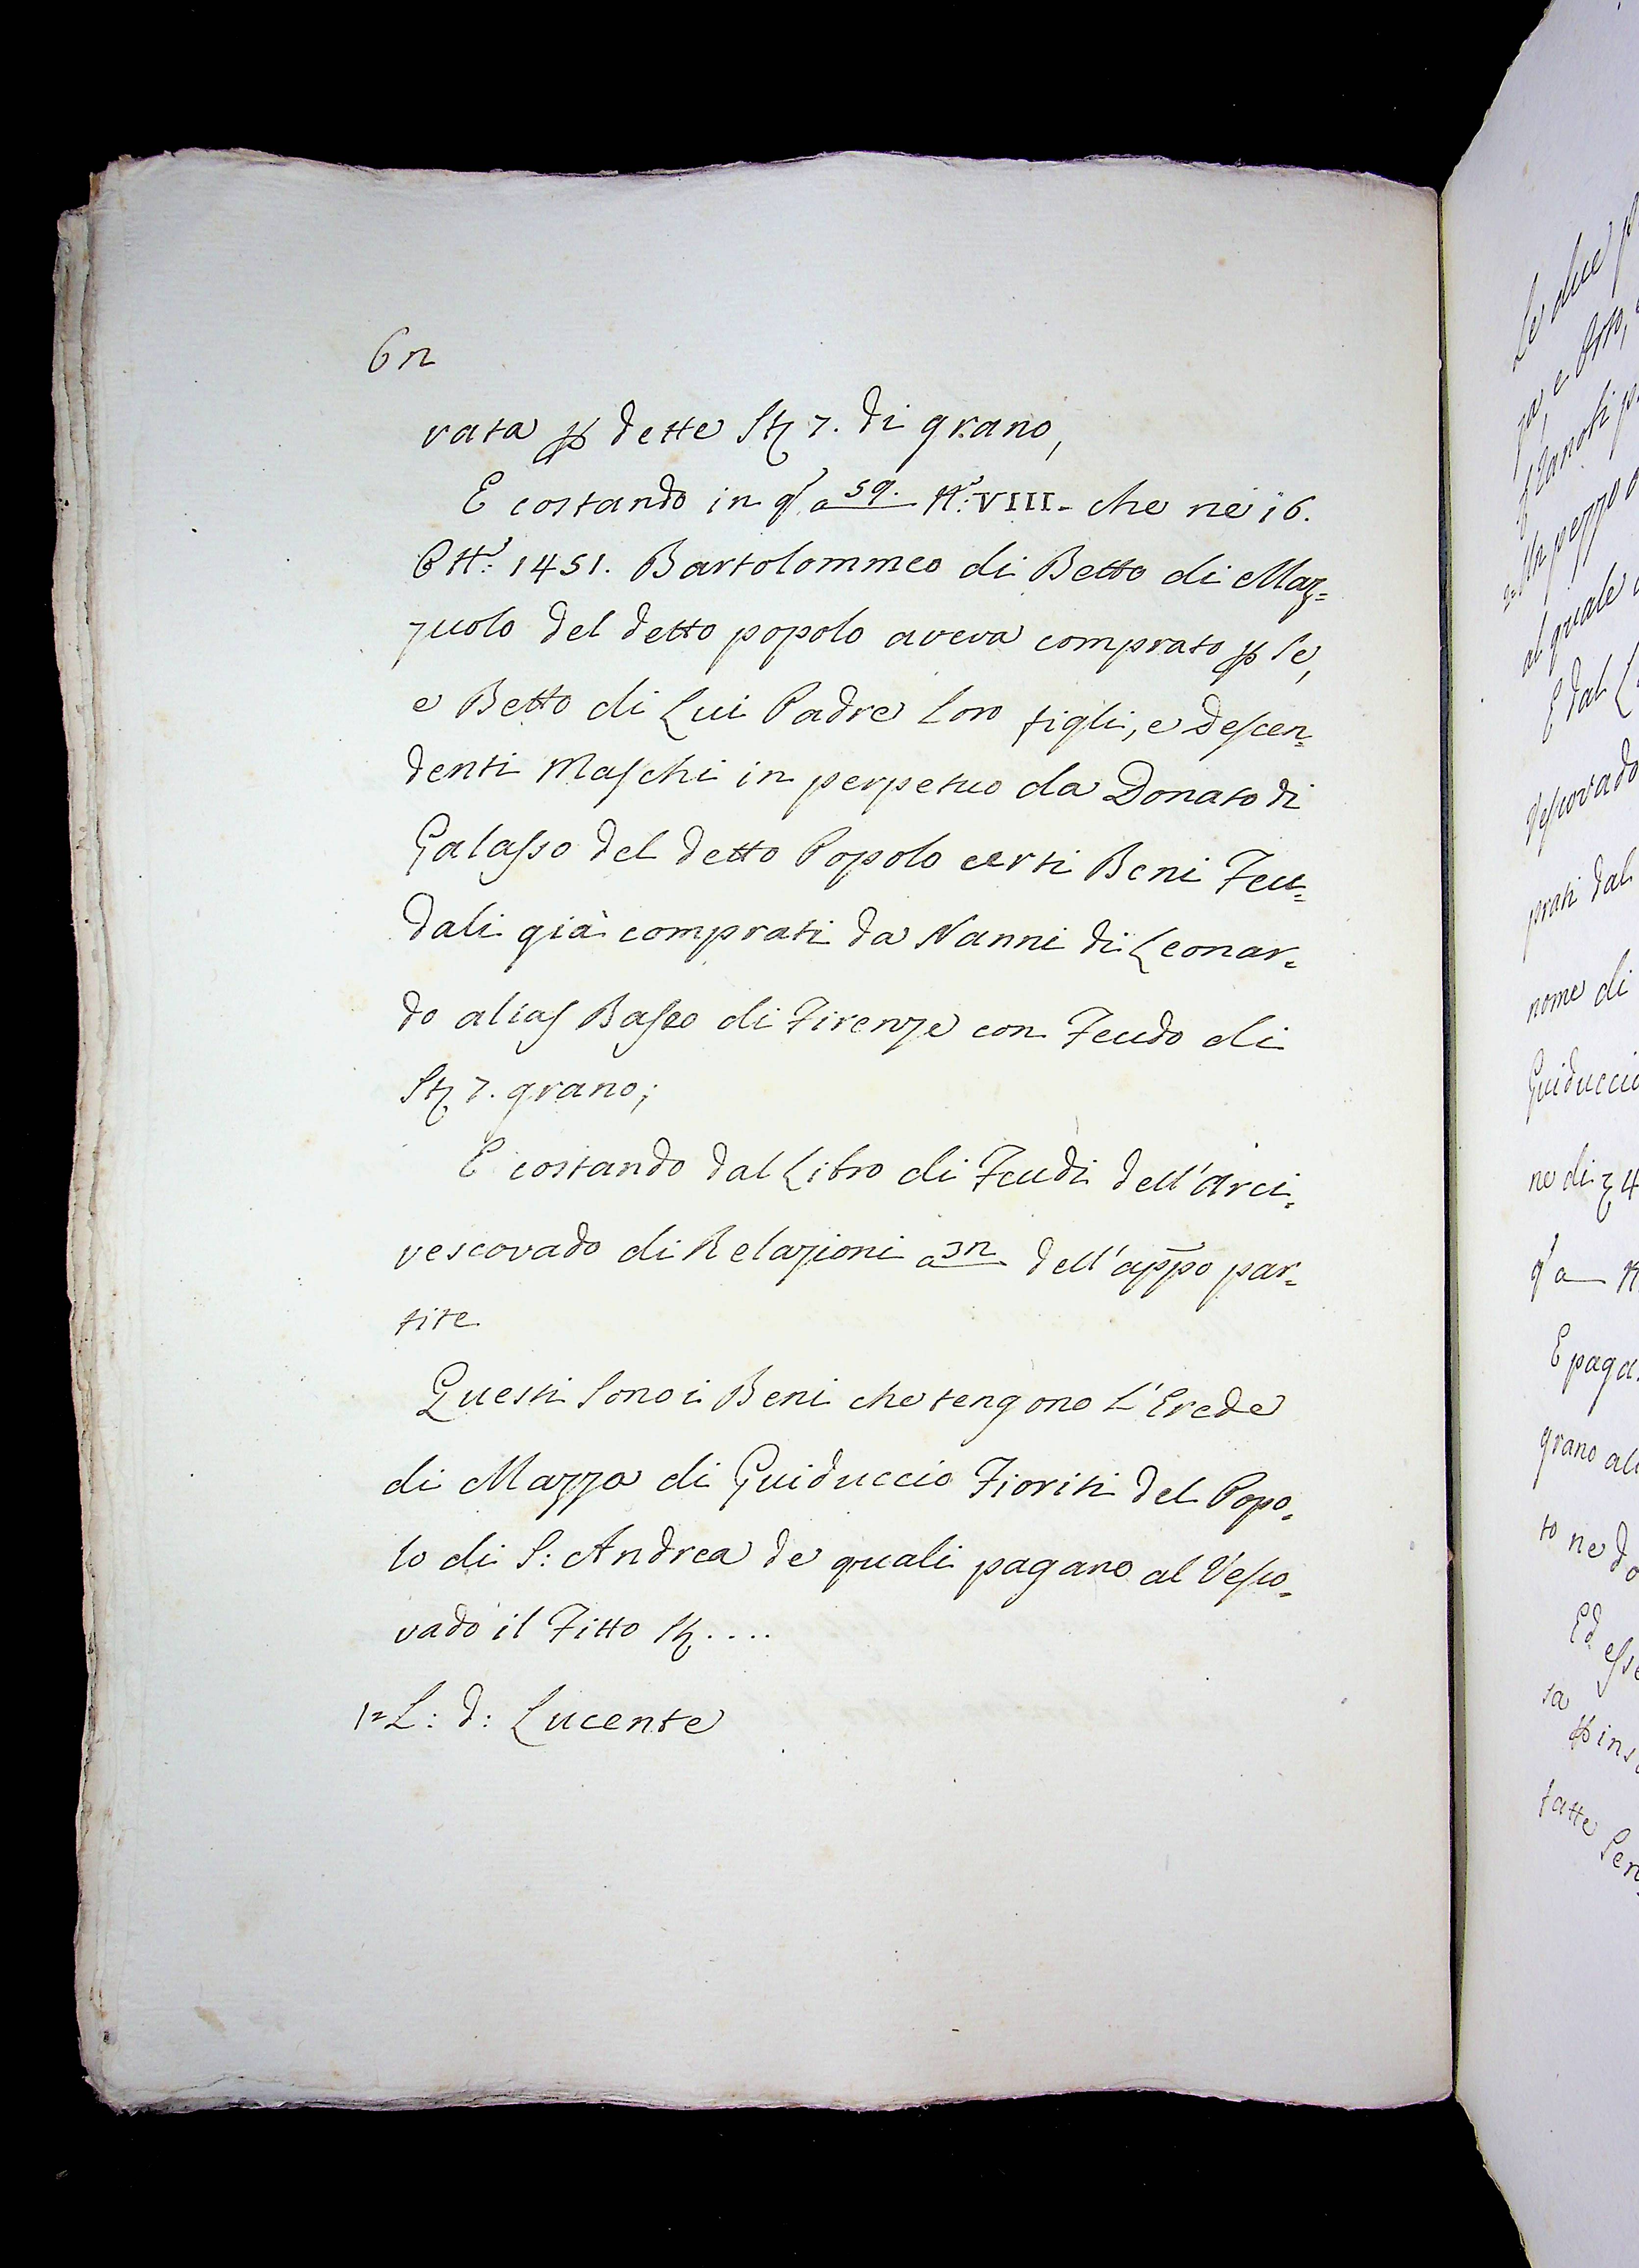 6n
rata ꝑ dette St. 7. di grano,
E costando in qᵒ a 59. N.º VIII- che ne 16.
8bre 1451. Bartolommeo di Betto di Maz=
zuolo del detto popolo aveva comprato ꝑ Se,
e Betto di Lui Padre Loro figli, e Descen=
denti Maschi in perpetuo da Donato di
Galasso del detto Popolo certi Beni Feu=
dali già comprati da Nanni di Leonar=
do alias di Firenze con Feudo di
St. 7. grano;
E costando dal Libro di Feudi dell'Arci=
vescovado di Relazioni a 3n dell'appo par=
tite
Questi Sono i Beni che tengono L'Erede
di Mazza di Guiduccio Fioriti del Popo=
lo di S: Andrea de quali pagano al Vesco=
vado il Fitto St....
1= L: d: Lucente
Le due
za, e
2= Un pezzo
al quale
E dal
Vescovado
prati dal
nome di
Guiduccio
ne di 4
qᵒ a N
E paga
grano al
to ne do
Ed esse
sa
ꝑ ins
fatte Sen